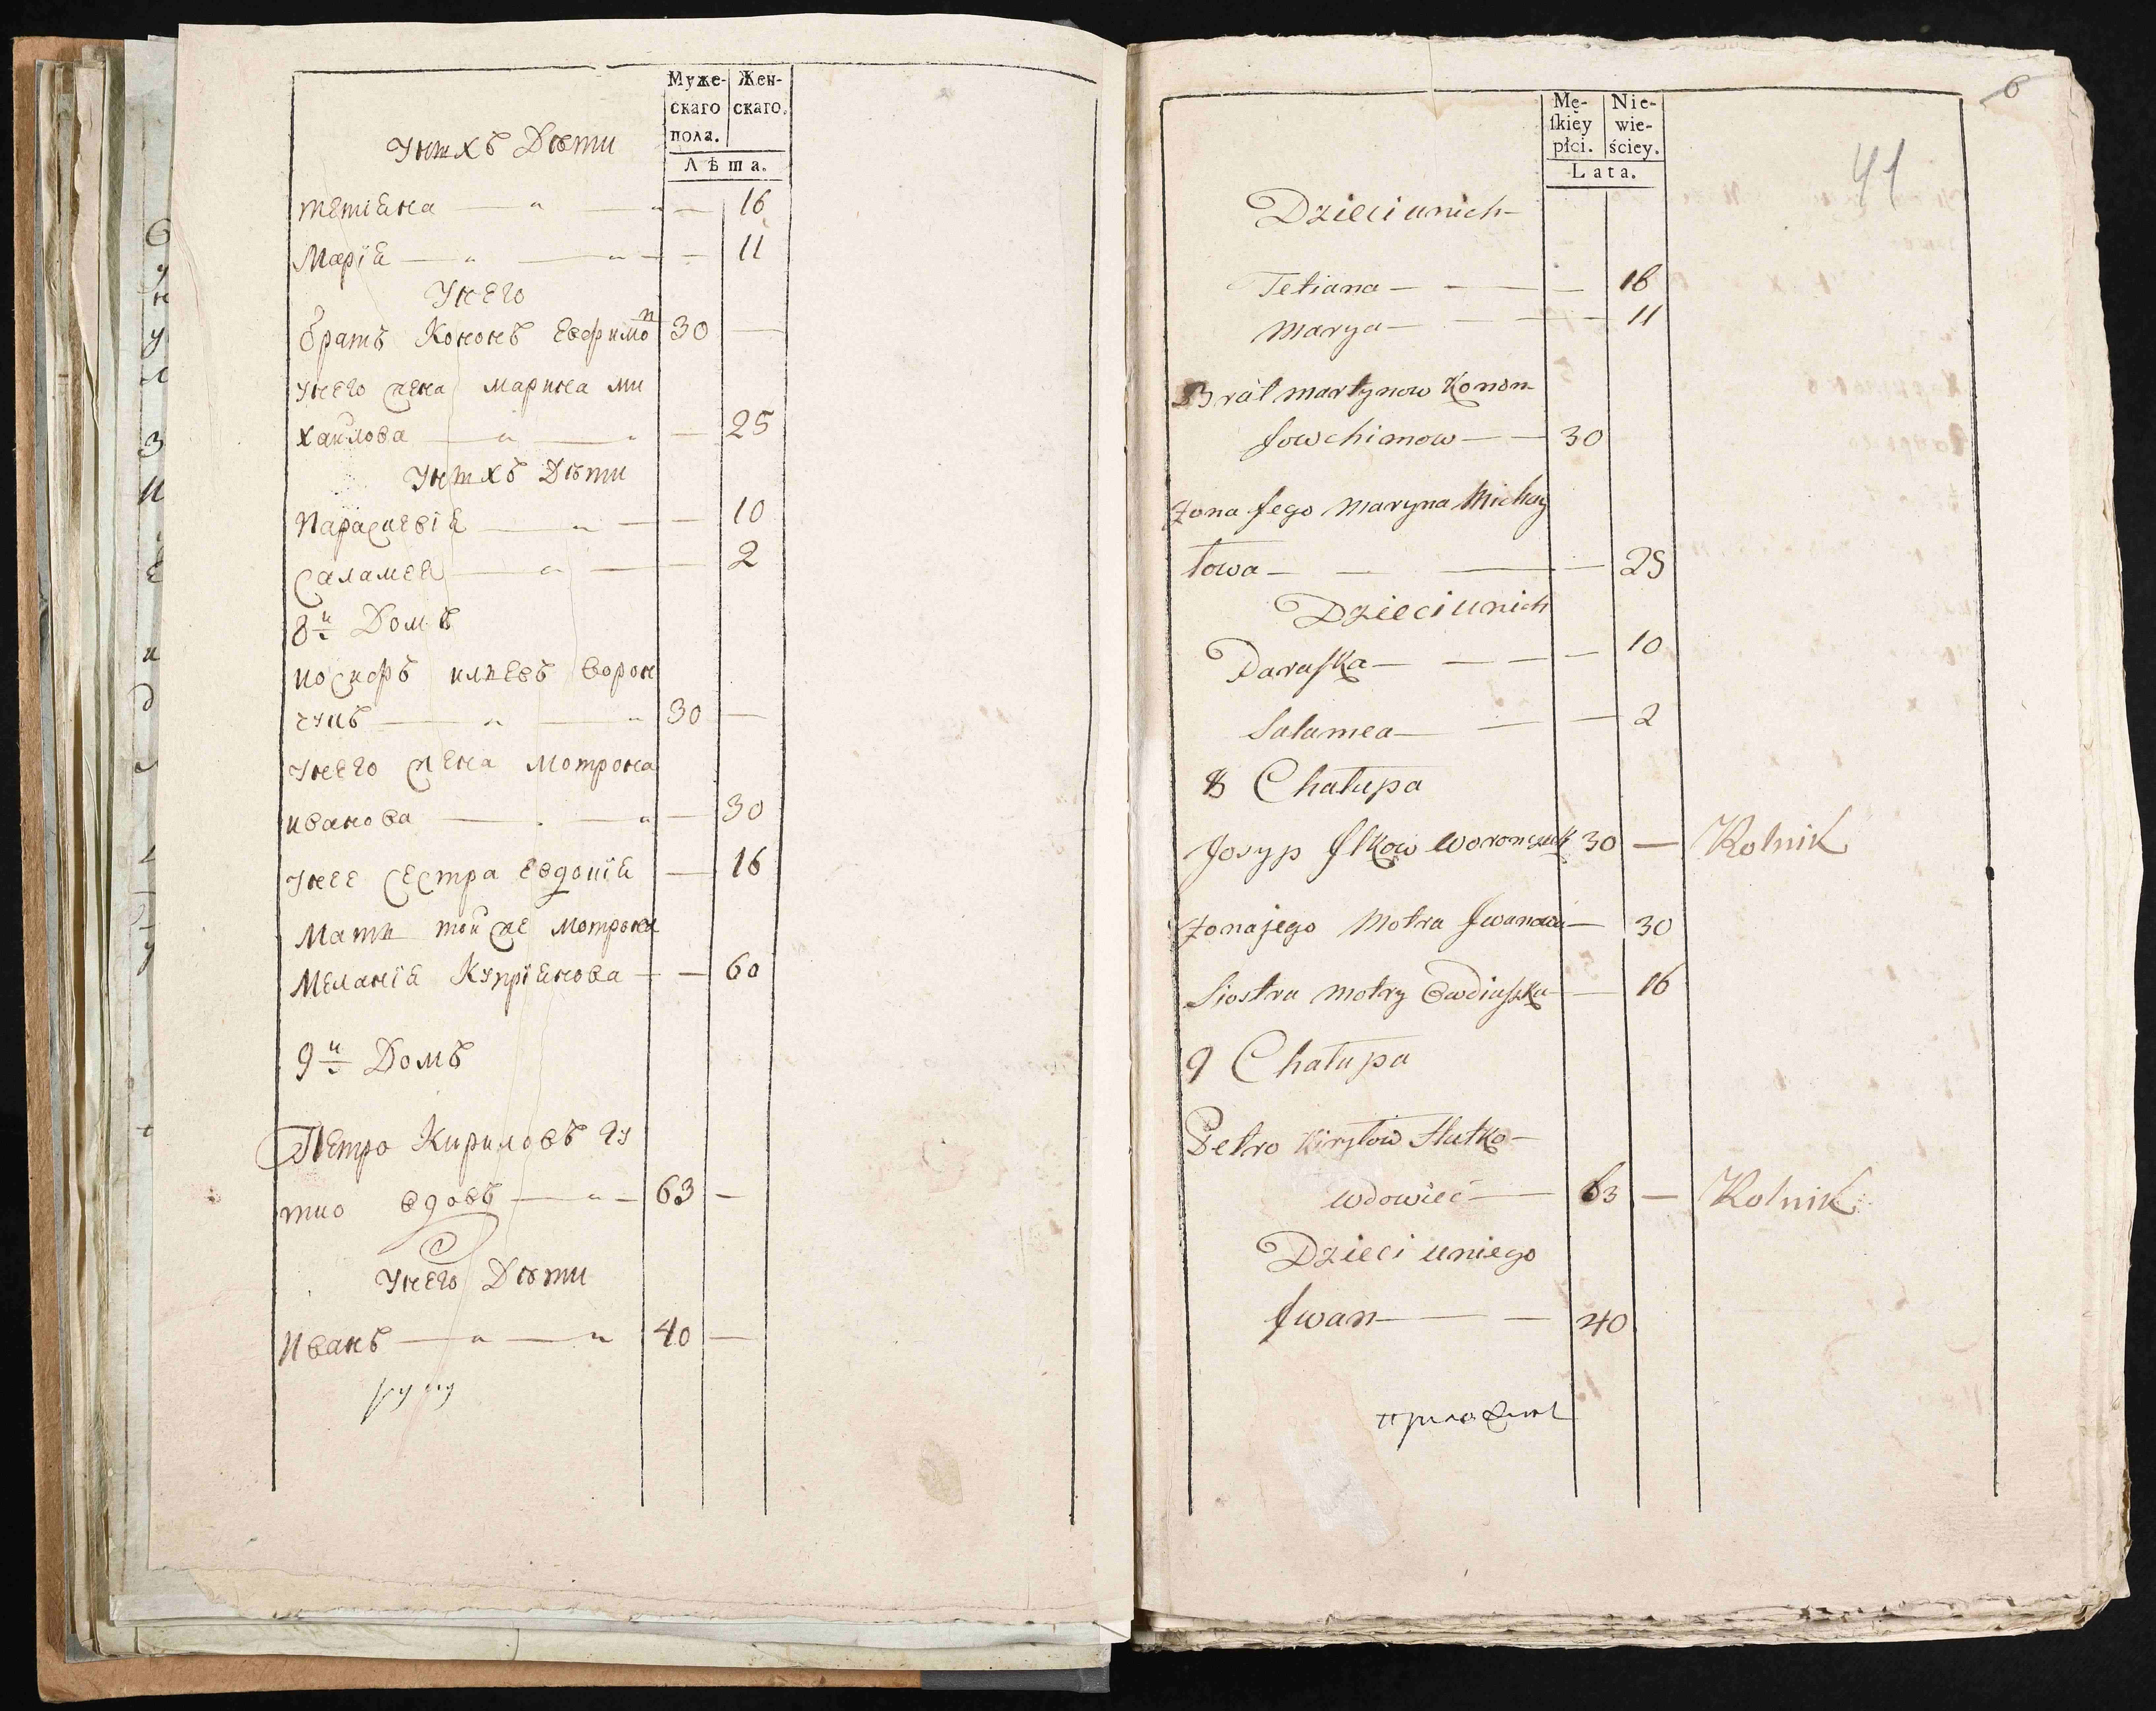 Муже- Жен-
скаго скаго.
пола.
Лѣта.
Унихъ Дѣти
тетіяна — 16
Марія — 11
Унего
братъ Кононъ Евфимо 30 —
унего жена марина ми
хайлова — 25
Унихъ Дѣти
Параскевія — 10
саламея — 2
8й Домъ
иосифъ илковъ ворон
чукъ — 30 —
унего жена мотрона
иванова — 30
унее сестра евдокія — 16
Мати той же мотроны
Меланія Купріянова — 60
9й Домъ
Петро Кириловъ Гу
тко вдовъ — 63 —
Унего Дѣти
Иванъ — 40 —
руку
6
41
Mę- Nie-
skiey wie-
płci. ściey.
Lata.
Dzieci unich
Tetiana — 16
Marya — 11
Brat martynow Konon
Jowchimow — 30
Żona Jego Maryna Michay
łowa — 25
Dzieci unich
Paraska — 10
Salamea — 2
8 Chałupa
Josyp Ilkow Woronczuk 30 — Rolnik
Żona jego Motra Iwanowa — 30
Siostra Motry Ewdiaszka — 16
9 Chałupa
Petro Kiryłow Hutko
wdowiec — 63 — Rolnik
Dzieci uniego
Iwan — 40
приложил